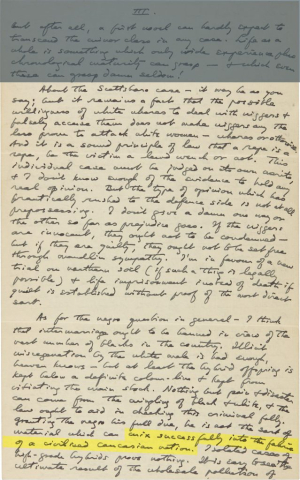 III.
but after all, a first novel can hardly expect to
transcend the minor class in any case. Life as a
whole is something which only wide experience plus
chronological maturity can grasp — & which even
these can grasp damn seldom!
About the Scottsboro case — it may be as you
say; but it remains a fact that the possible
willingness of white whores to deal with niggers &
falsely accuse them does not make niggers any the
less prone to attack white women — whores or otherwise.
And it is a sound principle of law that a rape is a
rape, be the victim a blond wench or not. This
individual case must be judged on its own merits
& I don't know enough of the evidence to hold any
real opinion. But the type of opinion which has
frantically rushed to the defence side is not at all
prepossessing. I don't give a damn one way or
the other so far as prejudice goes. If the niggers
are innocent, they ought not to be condemned —
but if they are guilty, they ought not to be set free
through maudlin sympathy. I'm in favour of a new
trial on northern soil (if such a thing is legally
possible) & life imprisonment instead of death if
guilt is established without proof of the most direct
sort.
As for the negro question in general — I think
that intermarriage ought to be banned in view of the
vast number of blacks in the country. Illicit
miscegenation by the white male is bad enough,
heaven knows — but at least the hybrid offspring is
kept below a definite colour-line & kept from
vitiating the main stock. Nothing but pain & disaster
can come from the mingling of black & white, & the
law ought to aid in checking this criminal folly.
Granting the negro his full due, he is not the sort of
material which can mix successfully into the fabric
of a civilised caucasian nation. Isolated cases of
high-grade hybrids prove nothing. It is easy to see the
ultimate result of the wholesale pollution of